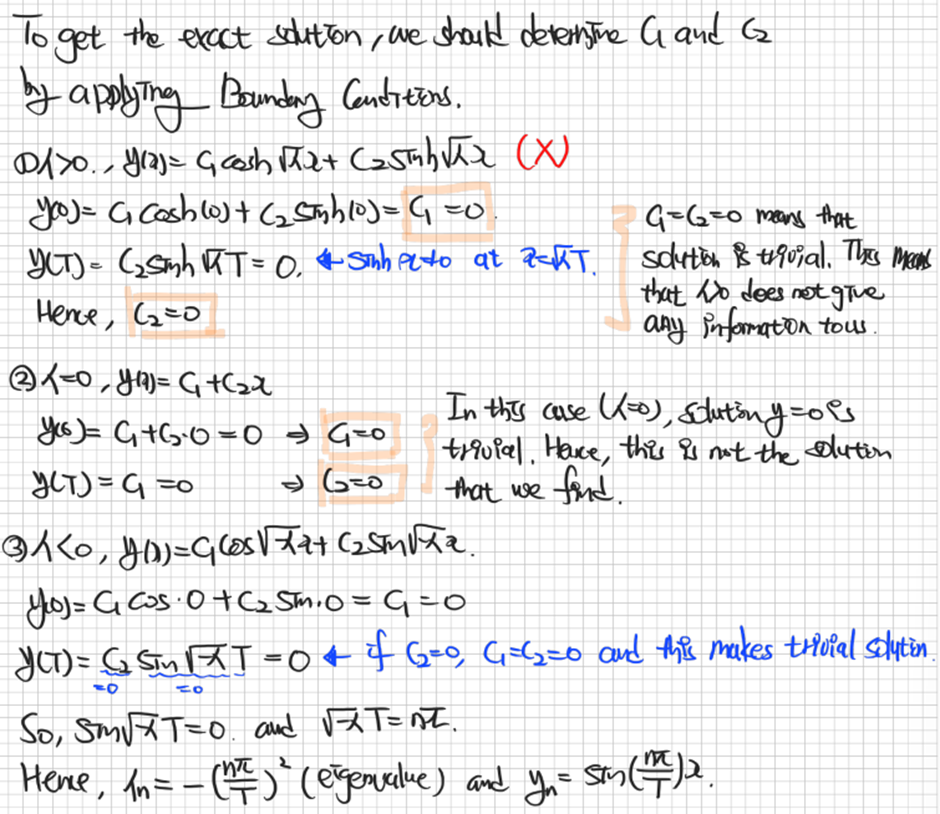 To get the exact solution, we should determine C₁ and C₂
by applying Boundary Conditions.
① λ>0., y(x) = C₁cosh√λx + C₂sinh√λx (X)
y(0) = C₁cosh(0) + C₂sinh(0) = C₁ = 0
y(T) = C₂sinh√λT = 0. ← sinh x≠0 at x=√λT.
Hence, C₂=0
C₁=C₂=0 means that
solution is trivial. This means
that λ>0 does not give
any information to us.
② λ=0, y(x) = C₁+C₂x
y(0) = C₁+C₂·0 = 0 ⇒ C₁=0
y(T) = C₁ = 0 ⇒ C₂=0
In this case (λ=0), solution y=0 is
trivial. Hence, this is not the solution
that we find.
③ λ<0, y(x) = C₁cos√-λx + C₂sin√-λx.
y(0) = C₁cos·0 + C₂sin·0 = C₁ = 0
y(T) = C₂ sin√-λT = 0 ← if C₂=0, C₁=C₂=0 and this makes trivial solution.
=0 =0
So, sin√-λT=0. and √-λT=nπ.
Hence, λn = -(nπ/T)² (eigenvalue) and yn = sin(nπ/T)x.